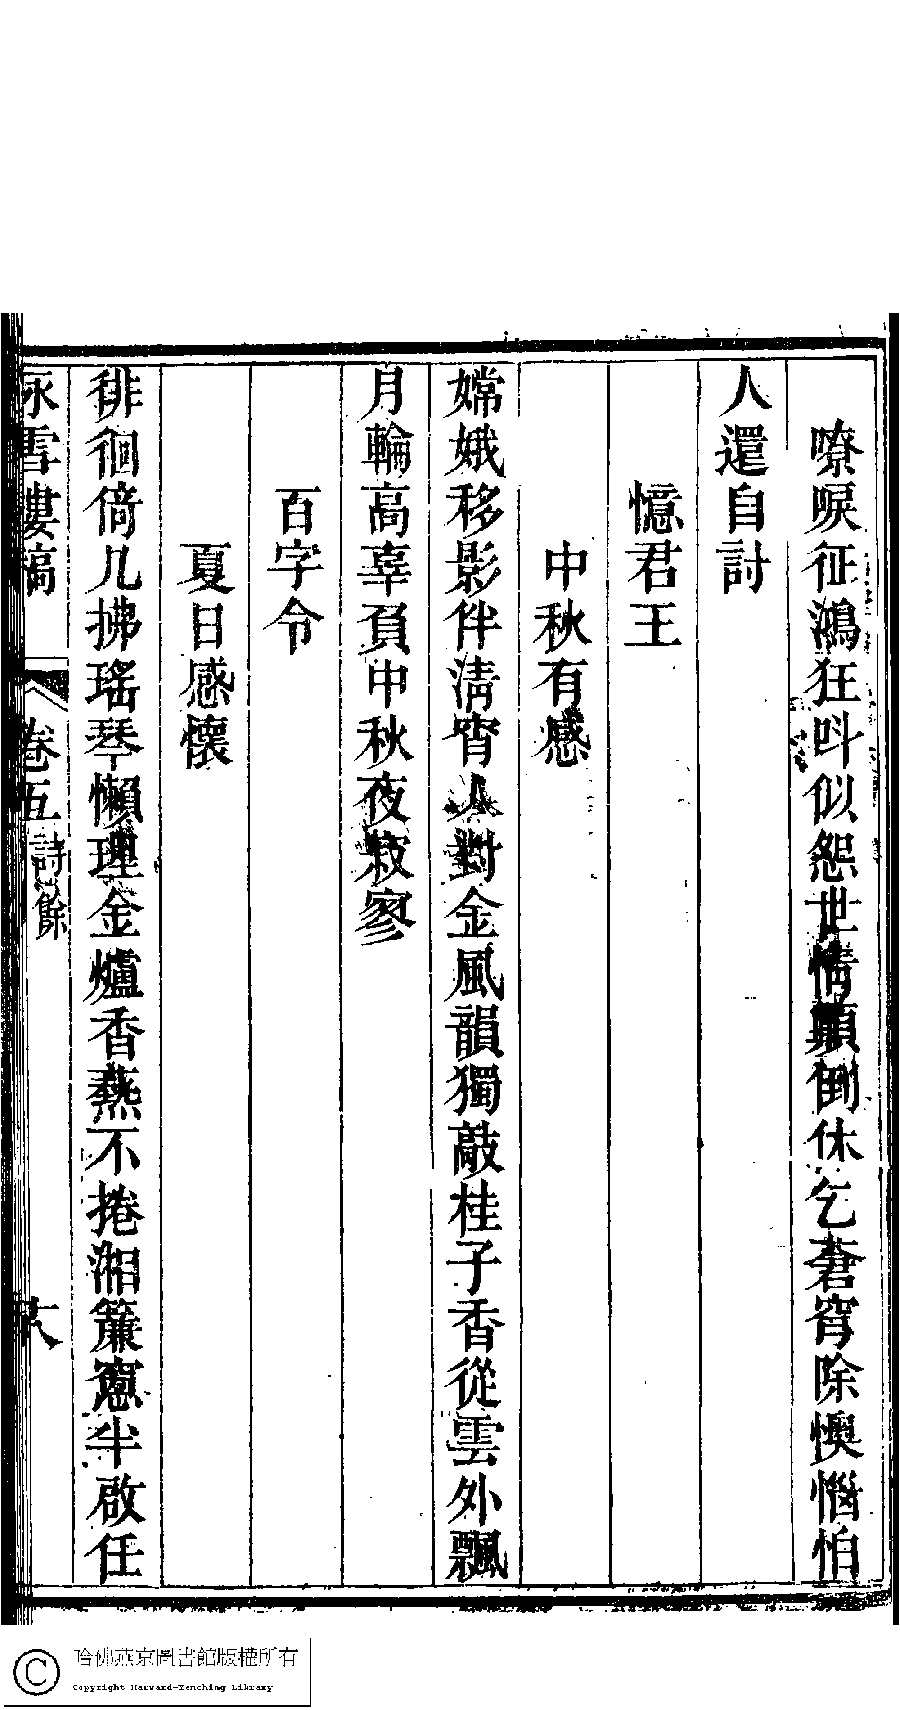 嘹唳征鴻狂呌似怨世情顛倒休乞蒼穹除懊惱怕
人還自討
憶君王
中秋有感
嫦娥移影伴淸宵人對金風韻獨敲桂子香從雲外飄
月輪高辜負中秋夜寂寥
百字令
夏日感懷
徘徊倚几拂瑤琴懶理金爐香爇不捲湘簾窻半啟任
咏雪樓稿
卷五
詩餘
哈佛燕京圖書館版權所有
Copyright Harvard-Yenching Library